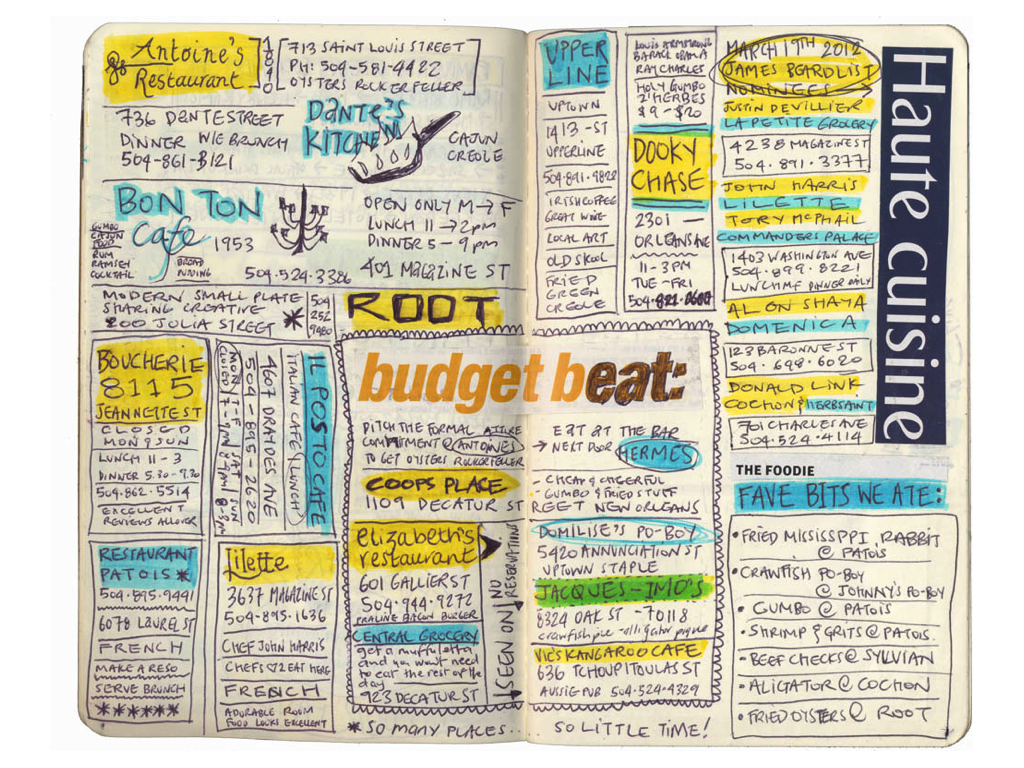 Antoine's
Restaurant
1840
713 SAINT LOUIS STREET
PH: 504-581-4422
OYSTERS ROCKERFELLER
736 DANTE STREET
DINNER WE BRUNCH
504-861-3121
DANTE'S
KITCHEN
CAJUN
CREOLE
BON TON
Cafe
1953
GUMBO
CAJUN
FOOD
RUM
RAMSEY
COCKTAIL
BREAD
PUDDING
504.524.3386
OPEN ONLY M → F
LUNCH 11 → 2pm
DINNER 5 - 9 pm
401 MAGAZINE ST
MODERN SMALL PLATE
SHARING CREATIVE
200 JULIA STREET *
504
252
9480
ROOT
BOUCHERIE
8115
JEANNETTE ST
CLOSED
MON & SUN
LUNCH 11 - 3
DINNER 5.30 - 9.30
504.862.5514
EXCELLENT
REVIEWS ALLOVER
IL POSTO CAFE
ITALIAN CAFE (LUNCH)
4607 DRATDES AVE
504-895-2620
MON
CLOSED
RESTAURANT
PATOIS *
504.895.9441
6078 LAUREL ST
FRENCH
MAKE A RESO
SERVE BRUNCH
******
Lilette
3637 MAGAZINE ST
504-895.1636
CHEF JOHN HARRIS
CHEFS ♡ 2 EAT HERE
FRENCH
ADORABLE ROOM
FOOD LOOKS EXCELLENT
budget beat:
PITCH THE FORMAL ATTIRE
COMMITMENT @ ANTOINES
TO GET OYSTERS ROCKERFELLER
→ EAT AT THE BAR
NEXT DOOR HERMES
COOPS PLACE
1109 DECATUR ST
- CHEAP & CHEERFUL
- GUMBO & FRIED STUFF
REET NEW ORLEANS
elizabeth's
restaurant
601 GALLIER ST
504.944.9272
PRALINE BACON BURGER
NO
RESERVATIONS
SEEN ON
CENTRAL GROCERY
get a muffuletta
and you won't need
to eat the rest of the
day
923 DECATUR ST
DOMILISE'S PO-BOY
5420 ANNUNCIATION ST
UPTOWN STAPLE
JACQUES-IMO'S
8324 OAK ST - 70118
crawfish pie - alligator
VIC'S KANGAROO CAFE
636 TCHOUPITOULAS ST
AUSSIE PUB 504-524-4329
* SO MANY PLACES...
SO LITTLE TIME!
UPPER
LINE
UPTOWN
1413 - ST
UPPERLINE
504.891.9822
IRISH COFFEE
GREAT WINE
LOCAL ART
OLD SKOOL
FRIED
GREEN
CREOLE
LOUIS ARMSTRONG
BARACK OBAMA
RAY CHARLES
HOLY GUMBO
Z'HERBES
$9 - $20
DOOKY
CHASE
2301 —
ORLEANS AVE
11 - 3PM
TUE - FRI
504.821.0600
MARCH 19TH 2012
JAMES BEARD LIST
NOMINEES →
JUSTIN DEVILLIER
LA PETITE GROCERY
4238 MAGAZINE ST
504.891.3377
JOHN HARRIS
LILETTE
TORY McPHAIL
COMMANDERS PALACE
1403 WASHINGTON AVE
504.899.8221
LUNCH M-F DINNER DAILY
ALON SHAYA
DOMENICA
123 BARONNE ST
504.648.6020
DONALD LINK
COCHON & HERBSAINT
701 CHARLES AVE
504-524-4114
Haute cuisine
THE FOODIE
FAVE BITS WE ATE:
• FRIED MISSISSPPI RABBIT
@ PATOIS
• CRAWFISH PO-BOY
@ JOHNNY'S PO-BOY
• GUMBO @ PATOIS
• SHRIMP & GRITS @ PATOIS.
• BEEF CHECKS @ SYLVIAN
• ALIGATOR @ COCHON
• FRIED OYSTERS @ ROOT